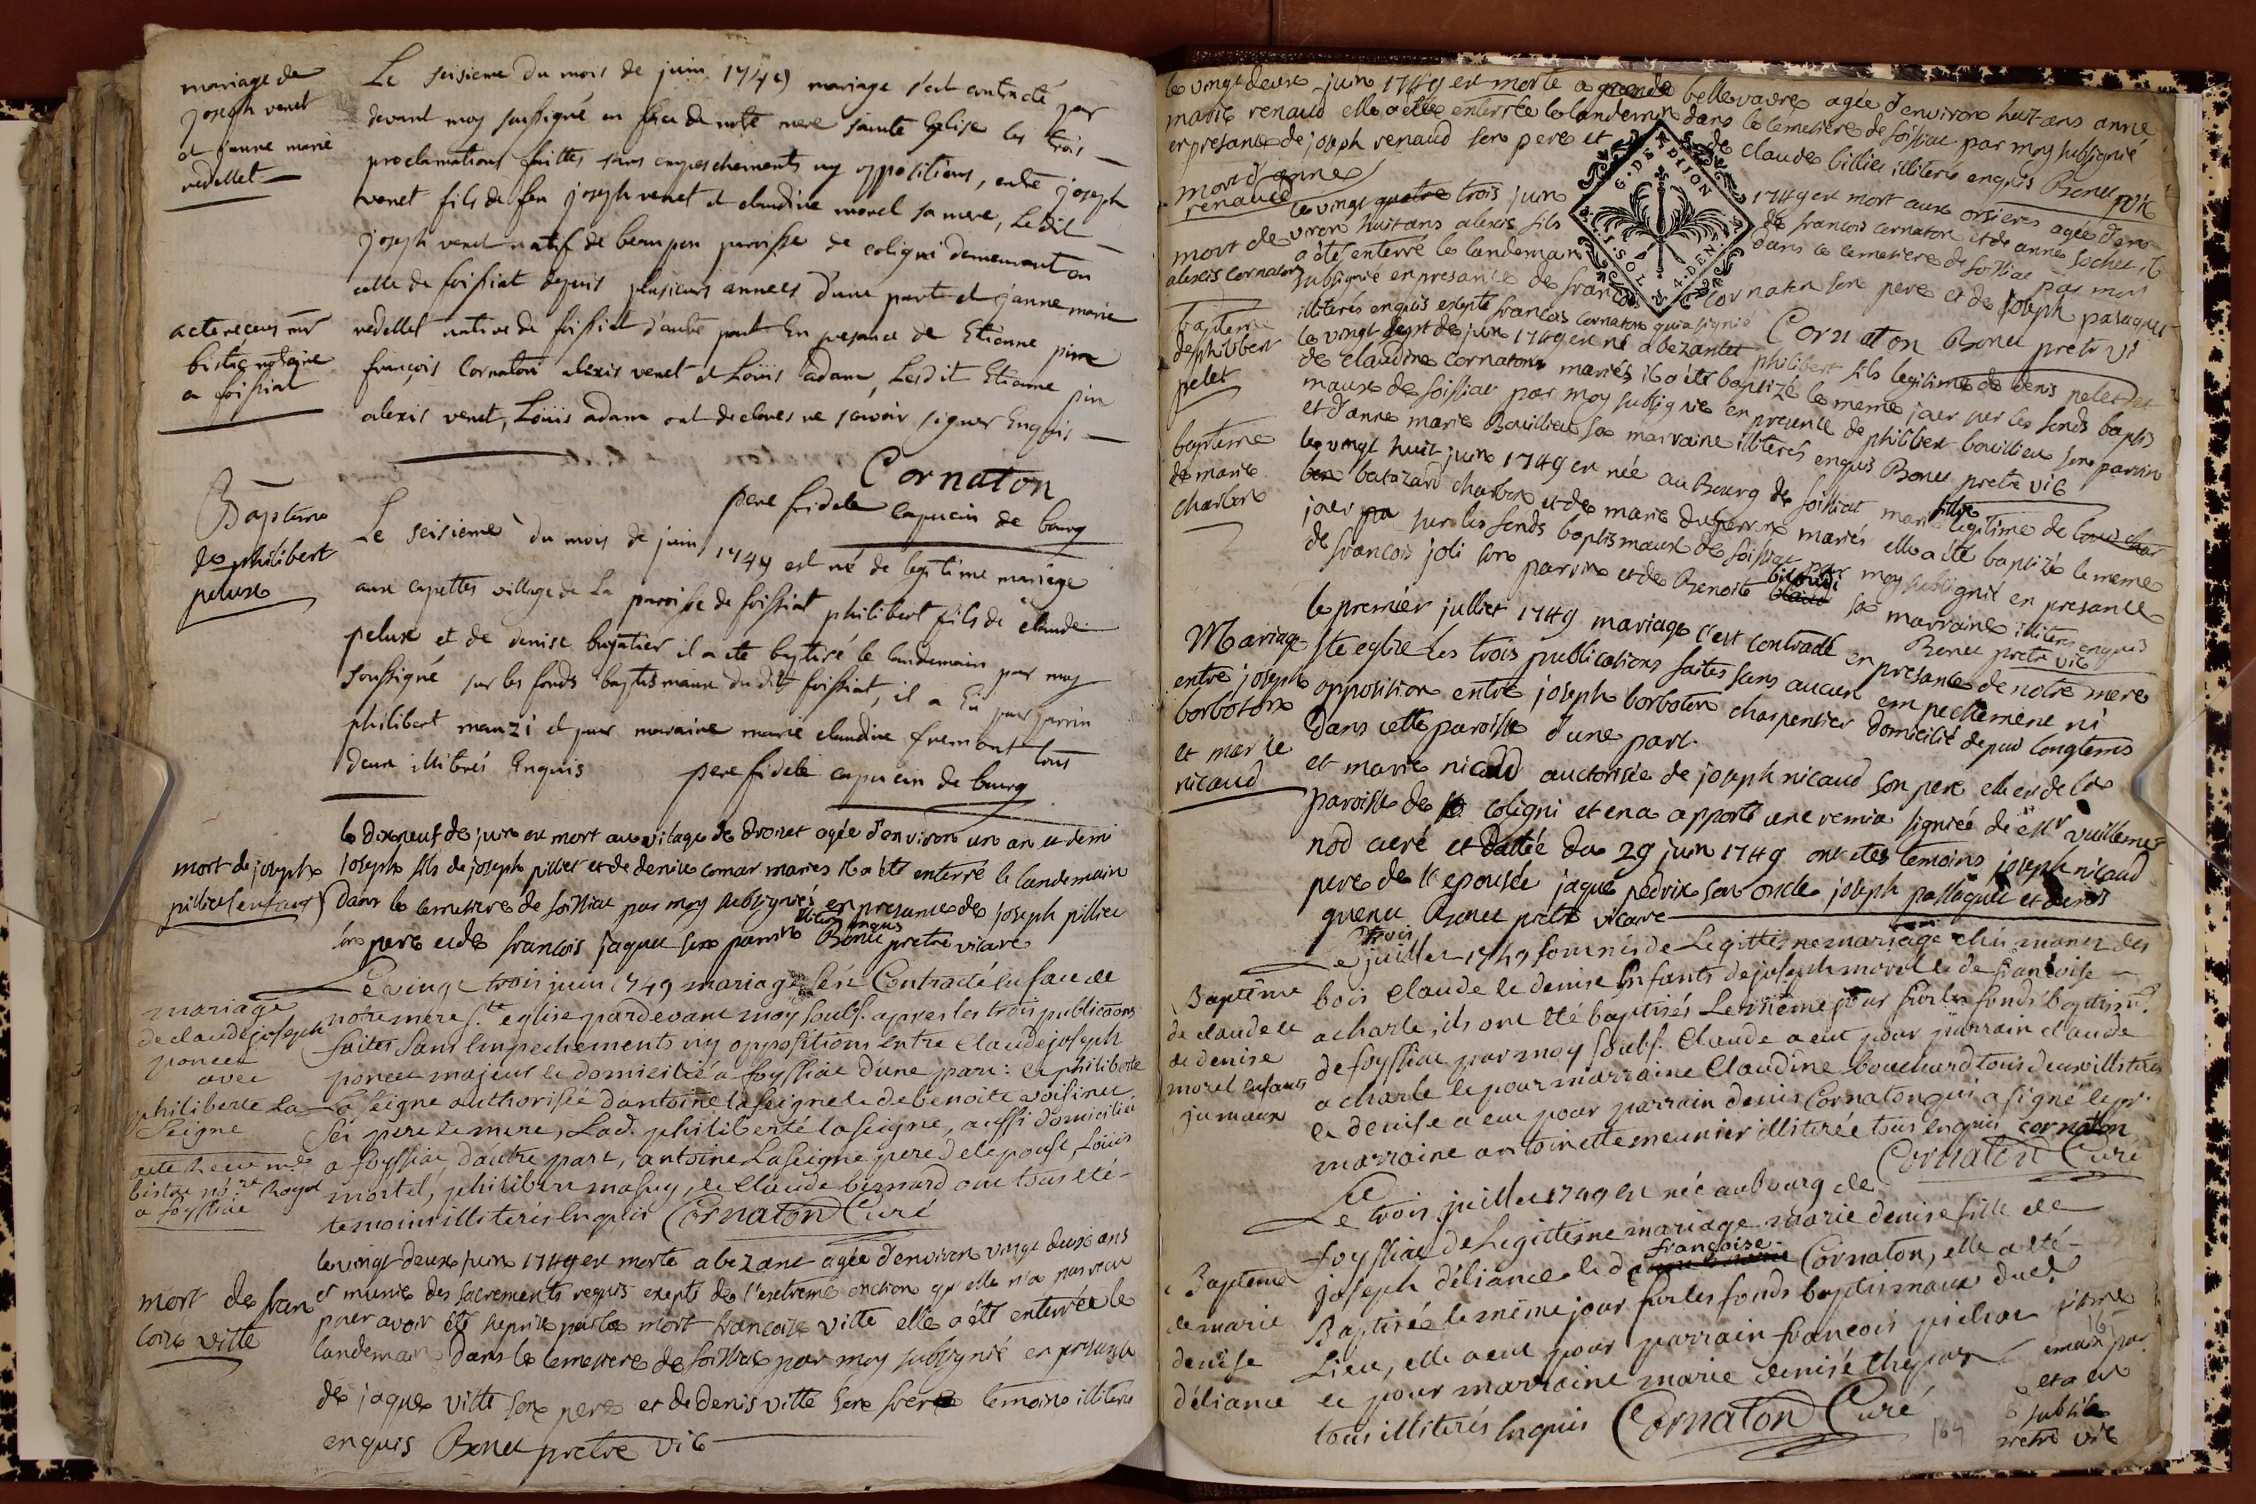 mariage de
joseph venet
et janne marie
vedellet
Le seisieme du mois de juin 1749 mariage s'est contracté par
devant moy soussigné en face de notre mere sainte Eglise les trois
proclamations faittes sans empeschements ny oppositions, entre joseph
venet fils de feu joseph venet et claudine morel sa mere, Le dit
joseph venet natif de beaupon paroisse de coligni demeurant en
celle de foissiat depuis plusieurs annees d'une parte et janne marie
vedellet native de foissiat d'autre part En presance de Etienne pin
françois Cornaton alexis venet et Loüis adam, Lesdit Etienne pin
alexis venet, Loüis adam ont declarés ne scavoir signer Enquis
acte receus
a foissiat
Cornaton
pere fidele capucin de bourg
Bapteme
de philibert
pelux
Le seisieme du mois de juin 1749 est né de legitime mariage
aux capettes village de La paroisse de foissiat philibert fils de claude
pelux et de denise bugatier il a ete baptisé le landemain par moy
soussigné sur les fonds baptismaux du dit foissiat, il a Eü pour parrin
philibert manzi et pour maraine marie claudine fremont tous
deux illiterés Enquis pere fidele capucin de bourg
mort de joseph
pillier (enfant)
le dixneuf de juin est mort au vilage de dronet agée d'environ un an et demi
joseph fils de joseph pillier et de denise comar maries il a été enterré le landemain
dans le cemetiere de foissiat par moy subsignés en presance de joseph pillier
son pere et de francois jaquet son parrin illiteres enquis Bonet pretre vicaire
mariage
de claude joseph
poncet
avec
philiberte La
Seigne
a foyssiat
Le vingt trois juin 1749 mariage s'est Contracté en face de
notre mere Ste eglise pardevant moy soubs. apres les trois publications
faites sans Empechements ny oppositions entre Claude joseph
poncet majeur et domicilié a foyssiat d'une part: et philiberte
La Seigne authorisée d'antoine laseigne et de benoite voisinet
ses pere et mere, Lad. philiberte laseigne, aussi domiciliée
a foyssiat d'autre part, antoine Laseigne pere de lepouse, Loüis
mortel, philibert masuy, et Claude bernard ont tous eté
temoins illiterés Enquis Cornaton Curé
mort de fran
coise vitte
le vingt deux juin 1749 est morte a bezant agée d'environ vingt deux ans
et munie des sacrements requis exepté de l'extreme onction qu'elle n'a pas receu
pour avoir été suprise par la mort francoise vitte elle a été enterrée le
landemain dans le cemetiere de foissiat par moy subsigné en presance
de jaques vitte son pere et de denis vitte son frere temoins illiteres
enquis Bonet pretre vic
le vingt deux juin 1749 est morte a grande bellevavre agée d'environ huit ans anne
marie renaud elle a etée enterrée le landemin dans le cemetiere de foissiat par moy subsigné
en presance de joseph renaud son pere et de claude billiet illiterés enquis Bonet ptre
mort d'anne
renaud
G. DE DIJON
4. DEN.
mort de
alexis cornaton
le vingt quatre trois juin 1749 est mort aux orsieres agée d'en
viron huit ans alexis fils de francois cornaton et de anne sochet il
a été enterré le landemain dans le cemetiere de foissiat par moy
subsigné en presance de francois Cornaton son pere et de joseph pasaquet
illiterés enquis exepté francois cornaton qui a signé Cornaton Bonet pretre vi
bapteme
de philibert
pelet
le vingt sept de juin 1749 est né a bezantet philibert fils legitime de denis pelet et
de claudine cornaton mariés il a été baptizé le meme jour sur les fonds baptis
maux de foissiat par moy subsignie en presence de philibert bouillieu son parrin
et d'anne marie Bouillieu sa marraine illiterés enquis Bonet pretre vic
bapteme
de marie
charbon
le vingt huit juin 1749 est née au Bourg de foissiat marie fille legitime de
batazard charbon et de marie duperron mariés elle a été baptizé le meme
jour sur les fonds baptismaux de foissiat par moy subsignié en presance
de francois joli son parrin et de Benoite sa marraine illiteres enquis
Bonet pretre vic
Mariage
entre joseph
borboton
et marie
nicaud
le premier julliet 1749 mariage s'est contracté en presance de notre mere
ste eglise les trois publications faites sans aucun empechement ni
opposition entre joseph borboton charpentier domicilié depuis longtems
dans cette paroisse d'une part.
et marie nicaud auctorisée de joseph nicaud son pere elle est de la
paroisse de coligni et en a apporté une remise signée de Mr vuillerme
nod curé et dattée du 29 juin 1749 ont etés temoins joseph nicaud
pere de l'epousée jaque pedrix son oncle joseph passaquet et denis
guenu Bonet pretre vicaire
Baptême
de claude et
de denise
morel enfants
jumaux
Le trois juillet 1749 sont nés de Legittime mariage chés manez des
bois Claude et denise Enfants de joseph morel et de francoise
acharle, ils ont été baptisés Le même jour sur les fonds baptism.
de foyssiat par moy soubs. Claude a eut pour parrain claude
acharle et pour marraine Claudine bouchard tous deux illiterés
et denise a eut pour parrain denis Cornaton qui a signé et pr.
marraine antoinette meunier illiterée tous Enquis cornaton
Cornaton Curé
Baptême
de marie
denise
déliance
Le trois juillet 1749 est née au bourg de
foyssiat de Legittime mariage marie denise fille de
joseph déliance et de francoise Cornaton, elle a eté
Baptisée le même jour sur les fonds baptismaux dud.
Lieu, elle a eut pour parrain francois pichat
et pour marraine marie denise
tous illiterés Enquis Cornaton Curé
subsi
pretre vic
169